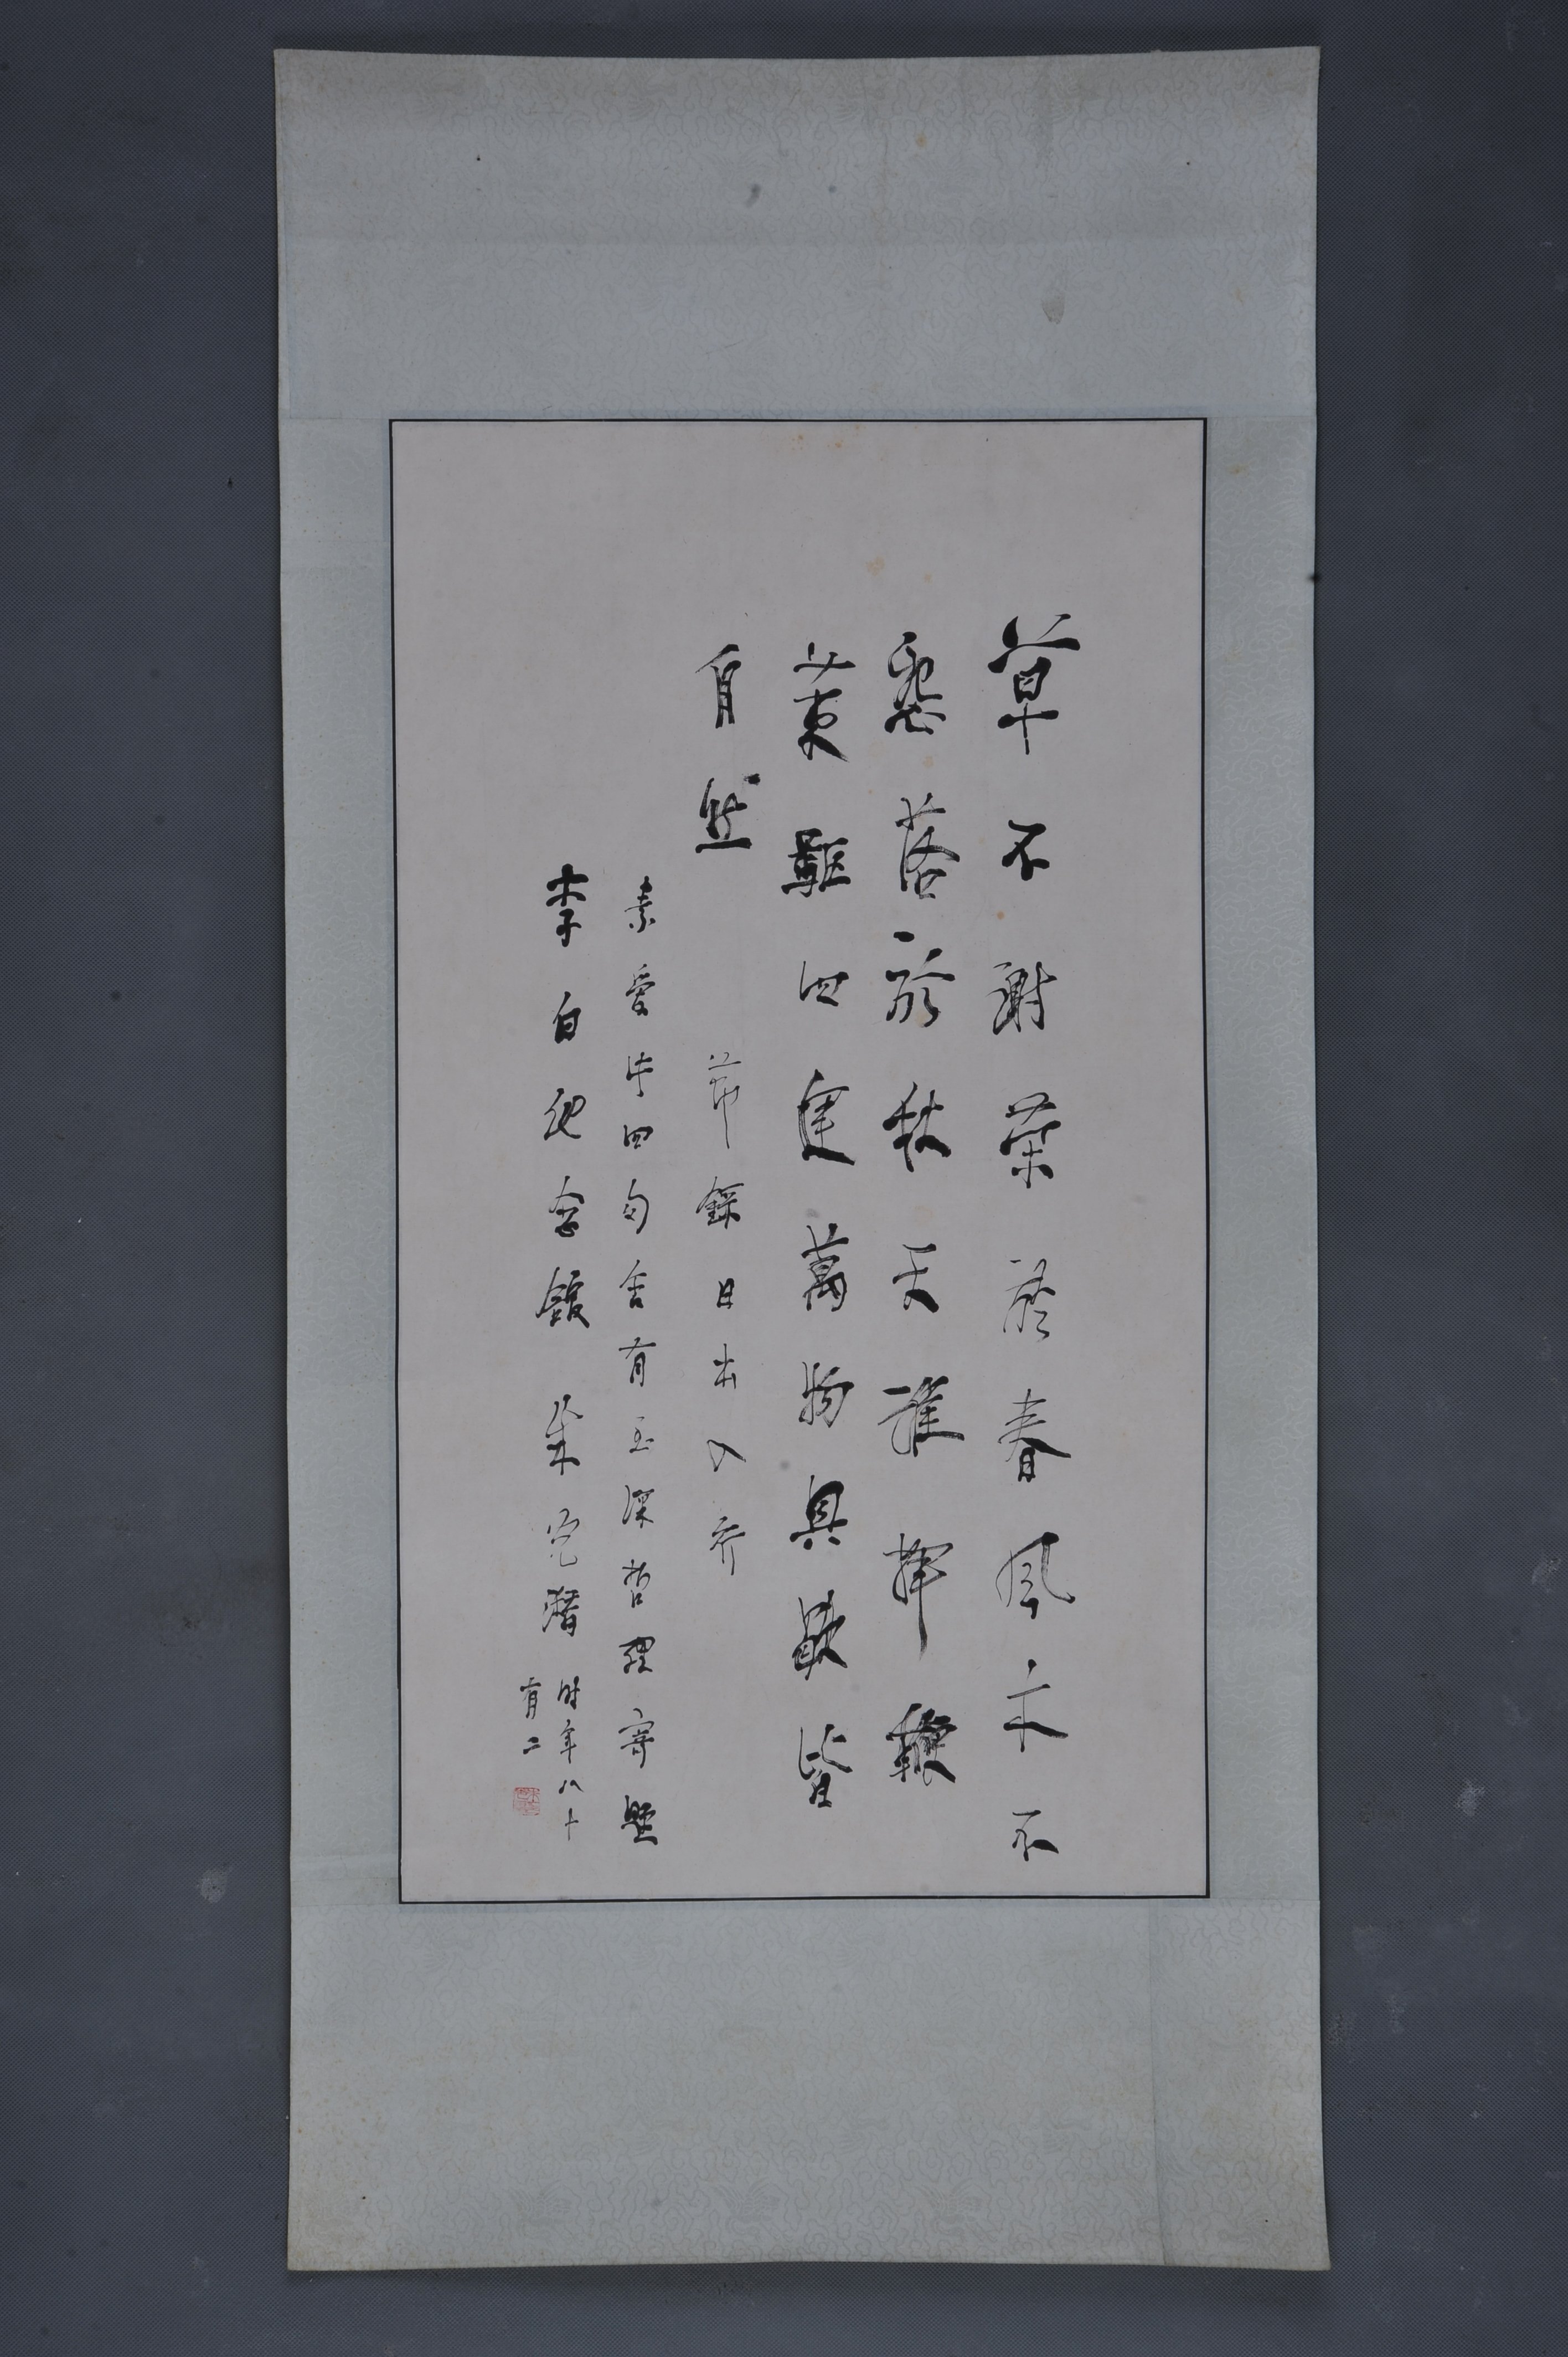 草不謝榮於春風木不
怨落於秋天誰揮鞭
策驅四運萬物興歇皆
自然
節錄日出入行
素愛此四句含有至深哲理寄
李白紀念館 朱光潛
時年八十
有二